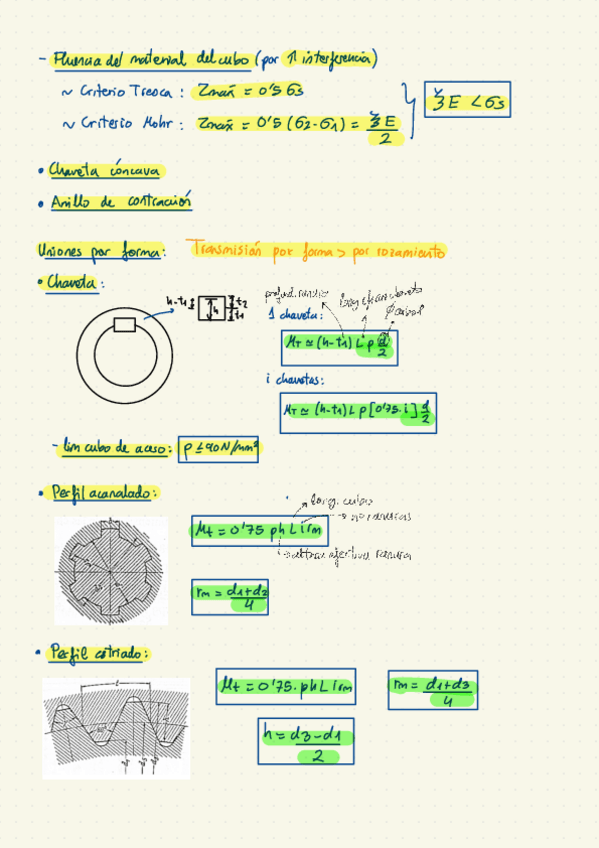 - Fluencia del material del cubo (por ↑ interferencia)
~ Criterio Tresca: Zmax = 0'5 σs
~ Criterio Mohr: Zmax = 0'5 (σ2-σ1) = ξE/2
ξE < σs
• Chaveta cóncava
• Anillo de contracción
Uniones por forma: Transmisión por forma > por rozamiento
• Chaveta:
h-t1 h t2
t1
profund. ranura long. efectiva chaveta
1 chaveta:
MT ≃ (h-t1) L p d/2
i chavetas:
MT ≃ (h-t1) L p [0'75·i] d/2
- lim cubo de acero: p ≤ 90 N/mm²
• Perfil acanalado:
long. cubo
Mt = 0'75 p h L i rm
→ nº ranuras
rm = d1+d2/4
• Perfil estriado:
Mt = 0'75·p h L i rm
rm = d1+d3/4
h = d3-d1/2